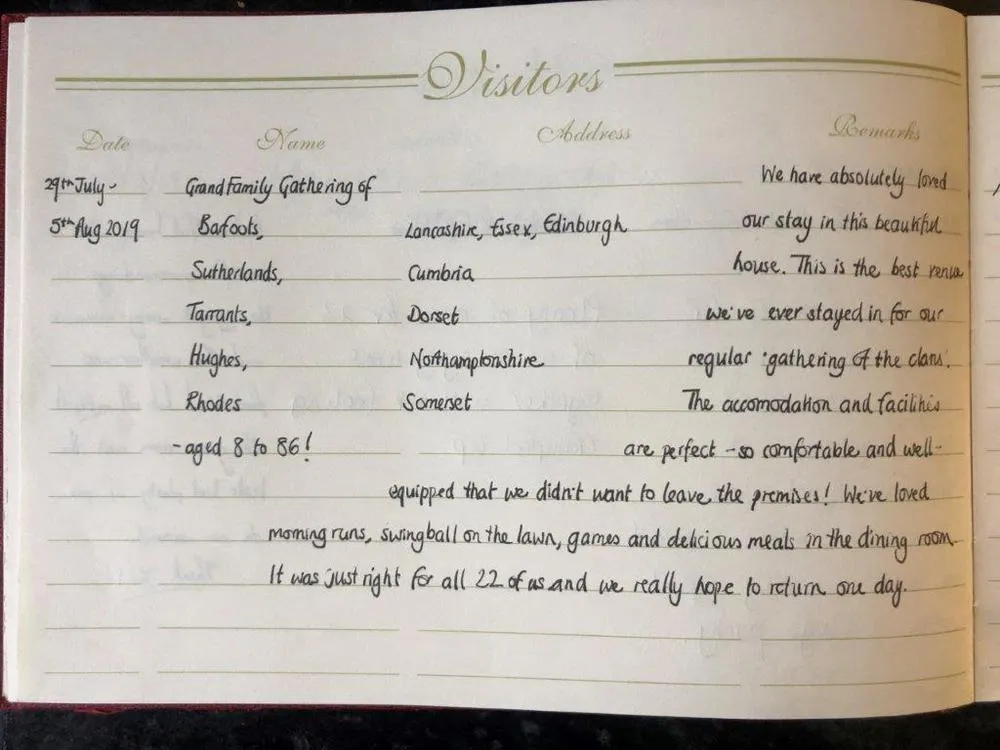 Visitors
Date Name Address Remarks
29th July - Grand Family Gathering of We have absolutely loved
5th Aug 2019 Barfoots, Lancashire, Essex, Edinburgh our stay in this beautiful
Sutherlands, Cumbria house. This is the best venue
Tarrants, Dorset we've ever stayed in for our
Hughes, Northamptonshire regular 'gathering of the clans'.
Rhodes Somerset The accomodation and facilities
- aged 8 to 86! are perfect - so comfortable and well-
equipped that we didn't want to leave the premises! We've loved
morning runs, swingball on the lawn, games and delicious meals in the dining room.
It was just right for all 22 of us and we really hope to return one day.